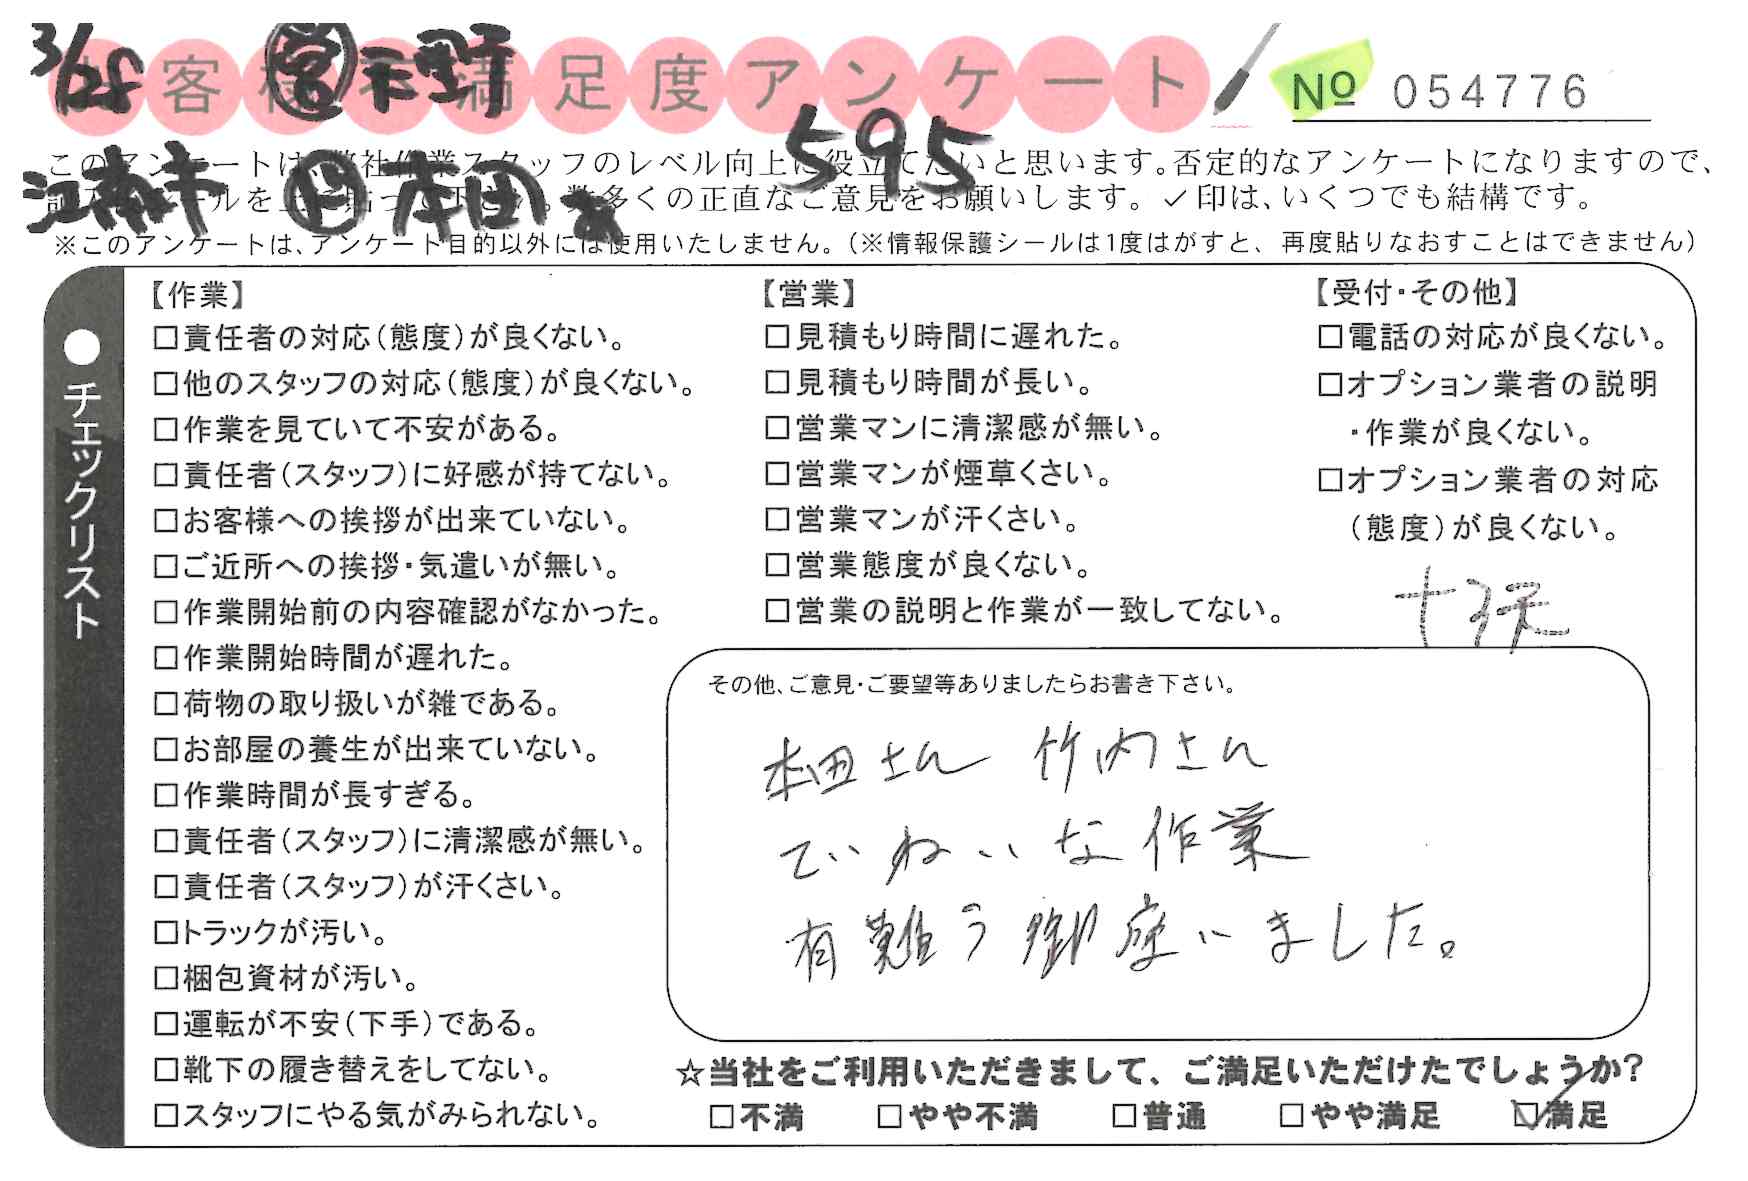 3/28 営 天野
お客様の満足度アンケート
№ 054776
595
このアンケートは、弊社作業スタッフのレベル向上に役立てたいと思います。否定的なアンケートになりますので、
江南市 ド 本田
記入シールを上に貼って下さい。数多くの正直なご意見をお願いします。✓印は、いくつでも結構です。
※このアンケートは、アンケート目的以外には使用いたしません。（※情報保護シールは1度はがすと、再度貼りなおすことはできません）
●チェックリスト
【作業】
□責任者の対応（態度）が良くない。
□他のスタッフの対応（態度）が良くない。
□作業を見ていて不安がある。
□責任者（スタッフ）に好感が持てない。
□お客様への挨拶が出来ていない。
□ご近所への挨拶・気遣いが無い。
□作業開始前の内容確認がなかった。
□作業開始時間が遅れた。
□荷物の取り扱いが雑である。
□お部屋の養生が出来ていない。
□作業時間が長すぎる。
□責任者（スタッフ）に清潔感が無い。
□責任者（スタッフ）が汗くさい。
□トラックが汚い。
□梱包資材が汚い。
□運転が不安（下手）である。
□靴下の履き替えをしてない。
□スタッフにやる気がみられない。
【営業】
□見積もり時間に遅れた。
□見積もり時間が長い。
□営業マンに清潔感が無い。
□営業マンが煙草くさい。
□営業マンが汗くさい。
□営業態度が良くない。
□営業の説明と作業が一致してない。
【受付・その他】
□電話の対応が良くない。
□オプション業者の説明
・作業が良くない。
□オプション業者の対応
（態度）が良くない。
その他、ご意見・ご要望等ありましたらお書き下さい。
本田さん 竹内さん
ていねいな作業
有難う御座いました。
☆当社をご利用いただきまして、ご満足いただけたでしょうか?
□不満 □やや不満 □普通 □やや満足 ☑満足